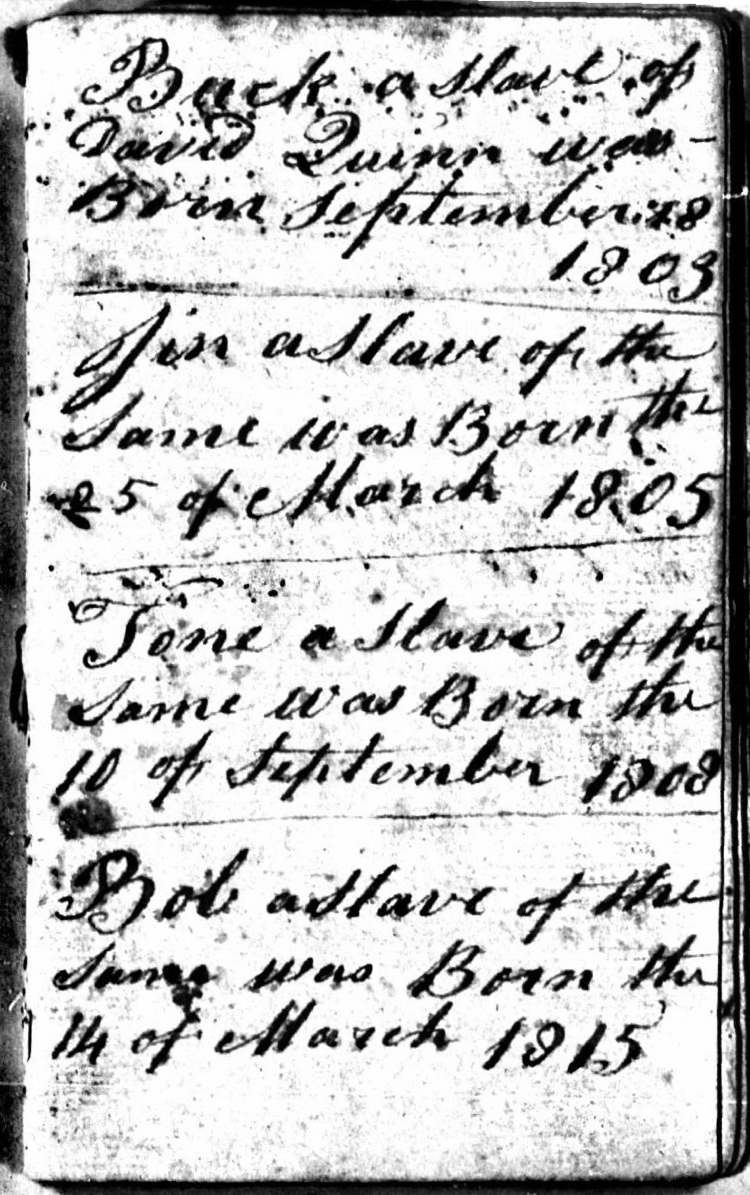 Buck a slave of
David Quinn was
Born September 28
1803
Jin a slave of the
Same was Born the
25 of March 1805
Tone a slave of the
Same was Born the
10 of September 1808
Bob a slave of the
Same was Born the
14 of March 1815